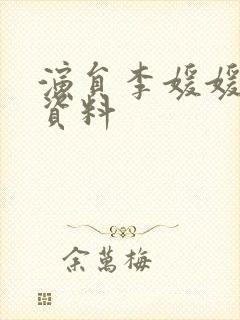 演員李媛媛
資料
余萬梅